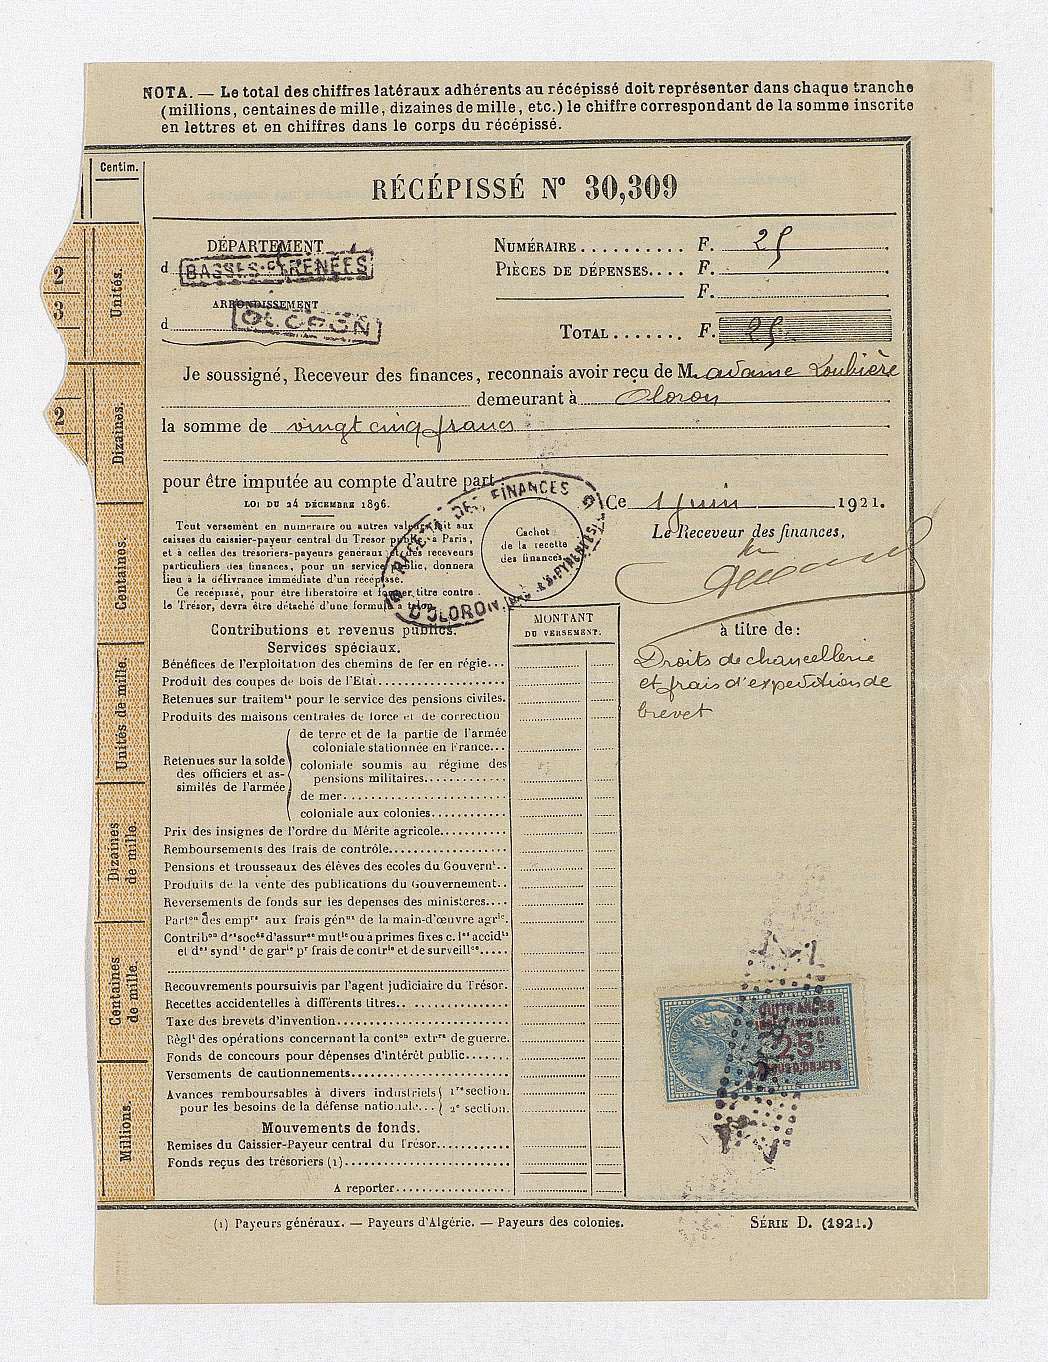 NOTA. — Le total des chiffres latéraux adhérents au récépissé doit représenter dans chaque tranche
(millions, centaines de mille, dizaines de mille, etc.) le chiffre correspondant de la somme inscrite
en lettres et en chiffres dans le corps du récépissé.
Centim.
2
3
Unités.
2
Dizaines.
Centaines.
Unités de mille.
Dizaines
de mille.
Centaines
de mille.
Millions.
RÉCÉPISSÉ N° 30,309
DÉPARTEMENT
d BASSES-PYRÉNÉES
ARRONDISSEMENT
d OLORON
NUMÉRAIRE.......... F. 25
PIÈCES DE DÉPENSES.... F.
F.
TOTAL....... F. 25
Je soussigné, Receveur des finances, reconnais avoir reçu de M. adame Loubière
demeurant à Oloron
la somme de vingt cinq francs
pour être imputée au compte d'autre part.
LOI DU 24 DÉCEMBRE 1896.
Tout versement en numéraire ou autres valeurs fait aux
caisses du caissier-payeur central du Trésor public à Paris,
et à celles des trésoriers-payeurs généraux et des receveurs
particuliers des finances, pour un service public, donnera
lieu à la délivrance immédiate d'un récépissé.
Ce récépissé, pour être libératoire et former titre contre
le Trésor, devra être détaché d'une formule à talon.
RECETTE DES FINANCES
D'OLORON (BSES-PYRÉNÉES)
Cachet
de la recette
des finances.
Ce 1 Juin 1921.
Le Receveur des finances,
à titre de:
Droits de chancellerie
et frais d'expédition de
brevet
MONTANT
DU VERSEMENT.
Contributions et revenus publics.
Services spéciaux.
Bénéfices de l'exploitation des chemins de fer en régie...
Produit des coupes de bois de l'État...................
Retenues sur traitemts pour le service des pensions civiles.
Produits des maisons centrales de force et de correction
Retenues sur la solde
des officiers et as-
similés de l'armée
de terre et de la partie de l'armée
coloniale stationnée en France...
coloniale soumis au régime des
pensions militaires............
de mer........................
coloniale aux colonies...........
Prix des insignes de l'ordre du Mérite agricole..........
Remboursements des frais de contrôle..................
Pensions et trousseaux des élèves des écoles du Gouvernt..
Produits de la vente des publications du Gouvernement..
Reversements de fonds sur les dépenses des ministères....
Parton des emprs aux frais génux de la main-d'œuvre agrle.
Contribon des socés d'assurce mutle ou à primes fixes c. les accidts
et des syndts de garie pr frais de contrle et de surveillce.....
Recouvrements poursuivis par l'agent judiciaire du Trésor.
Recettes accidentelles à différents titres................
Taxe des brevets d'invention........................
Règlt des opérations concernant la conton extrre de guerre.
Fonds de concours pour dépenses d'intérêt public.......
Versements de cautionnements.....................
Avances remboursables à divers industriels
pour les besoins de la défense nationale...
1re section.
2e section.
Mouvements de fonds.
Remises du Caissier-Payeur central du Trésor..........
Fonds reçus des trésoriers (1)........................
A reporter................
QUITTANCES
25c
(1) Payeurs généraux. — Payeurs d'Algérie. — Payeurs des colonies.
SÉRIE D. (1921.)